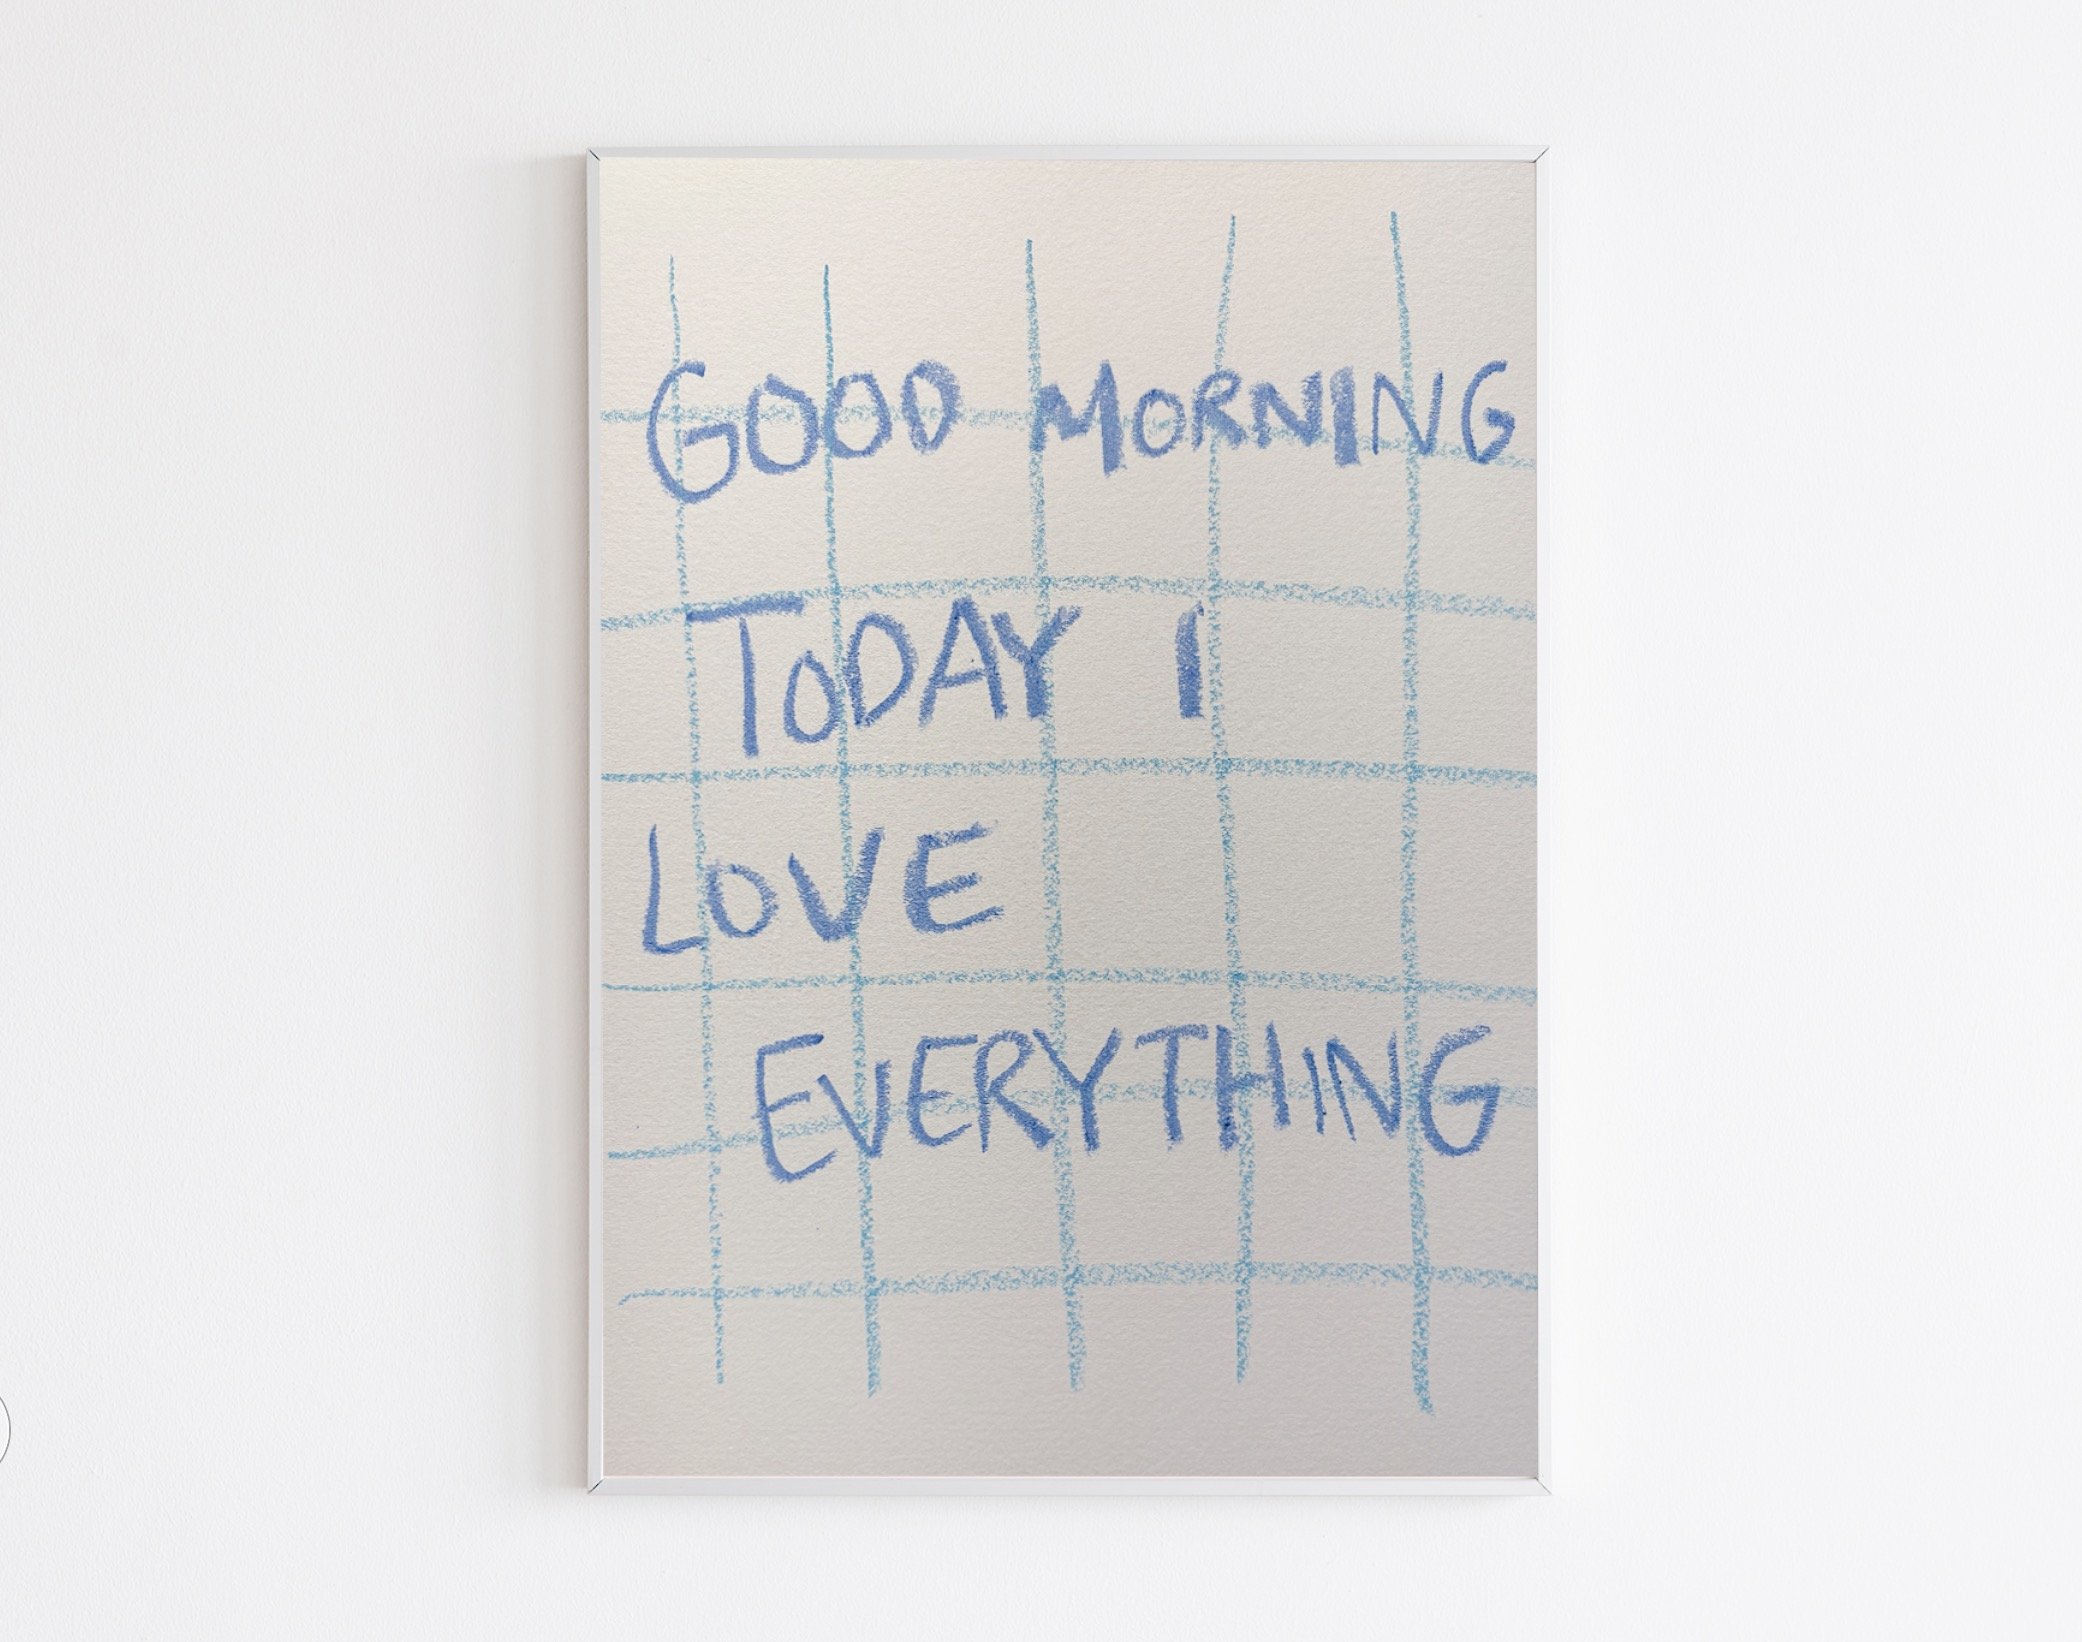 GOOD MORNING
TODAY I
LOVE
EVERYTHING